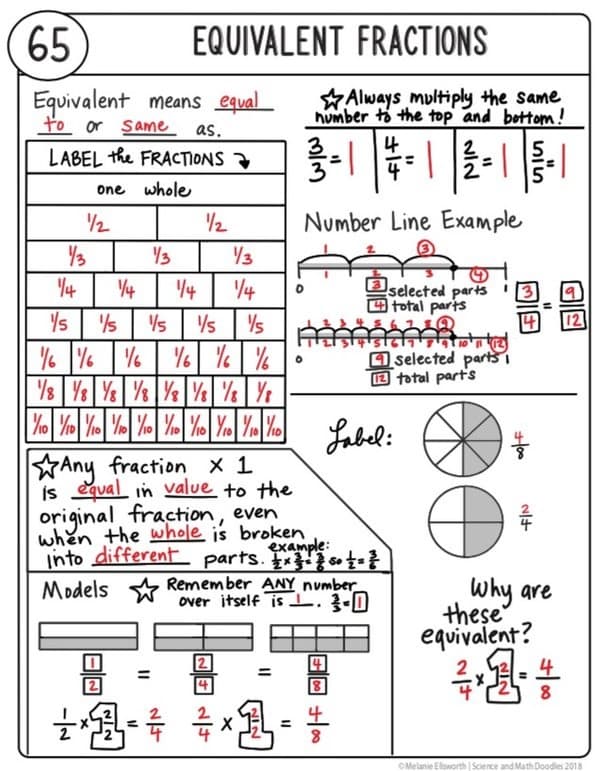 65
EQUIVALENT FRACTIONS
Equivalent means equal
to or same as.
LABEL the FRACTIONS
one whole
1/2 1/2
1/3 1/3 1/3
1/4 1/4 1/4 1/4
1/5 1/5 1/5 1/5 1/5
1/6 1/6 1/6 1/6 1/6 1/6
1/8 1/8 1/8 1/8 1/8 1/8 1/8 1/8
1/10 1/10 1/10 1/10 1/10 1/10 1/10 1/10 1/10 1/10
☆Always multiply the same
number to the top and bottom!
3/3=1 4/4=1 2/2=1 5/5=1
Number Line Example
1 2 3
0 1 2 3 4 1
3 selected parts
4 total parts
1 2 3 4 5 6 7 8 9
1 2 3 4 5 6 7 8 9 10 11 12
0 1
9 selected parts
12 total parts
3/4 = 9/12
Label:
4/8
2/4
☆Any fraction x 1
is equal in value to the
original fraction, even
when the whole is broken
into different parts.
example:
1/2 x 3/3 = 3/6 so 1/2 = 3/6
Models ☆ Remember ANY number
over itself is 1. 3/3=1
1/2 = 2/4 = 4/8
1/2 x 1 2/2 = 2/4 2/4 x 1 2/2 = 4/8
Why are
these
equivalent?
2/4 x 1 2/2 = 4/8
©Melanie Ellsworth | Science and Math Doodles 2018